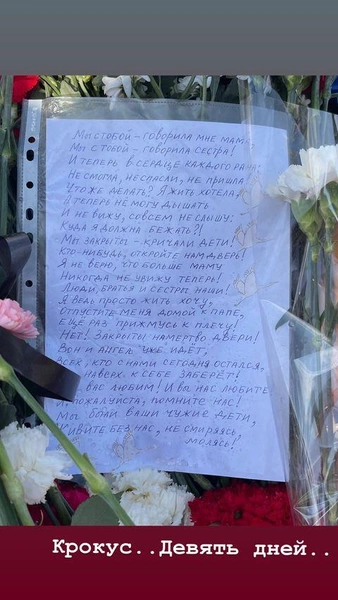 Мы с тобой – говорила мне мама,
Мы с тобой – говорила сестра!
И теперь в сердце каждого рана:
Не смогла, не спасли, не пришла
Что же делать? Я жить хотела,
А теперь не могу дышать
И не вижу, совсем не слышу:
Куда я должна бежать?!
Мы закрыты – кричали дети!
Кто-нибудь, откройте нам дверь!
Я не верю, что больше маму
Никогда не увижу теперь!
Люди, братья и сестры наши!
Я ведь просто жить хочу,
Отпустите меня домой к папе,
Ещё раз прижмусь к плечу!
Нет! Закрыты намертво двери!
Вон и ангел уже идёт,
Всех, кто с нами сегодня остался,
наверх к себе заберёт!
вас любим! И вы нас любите
И пожалуйста, помните нас!
Мы были ваши чужие дети,
Живите без нас, не смиряясь,
молясь!
Крокус..Девять дней..